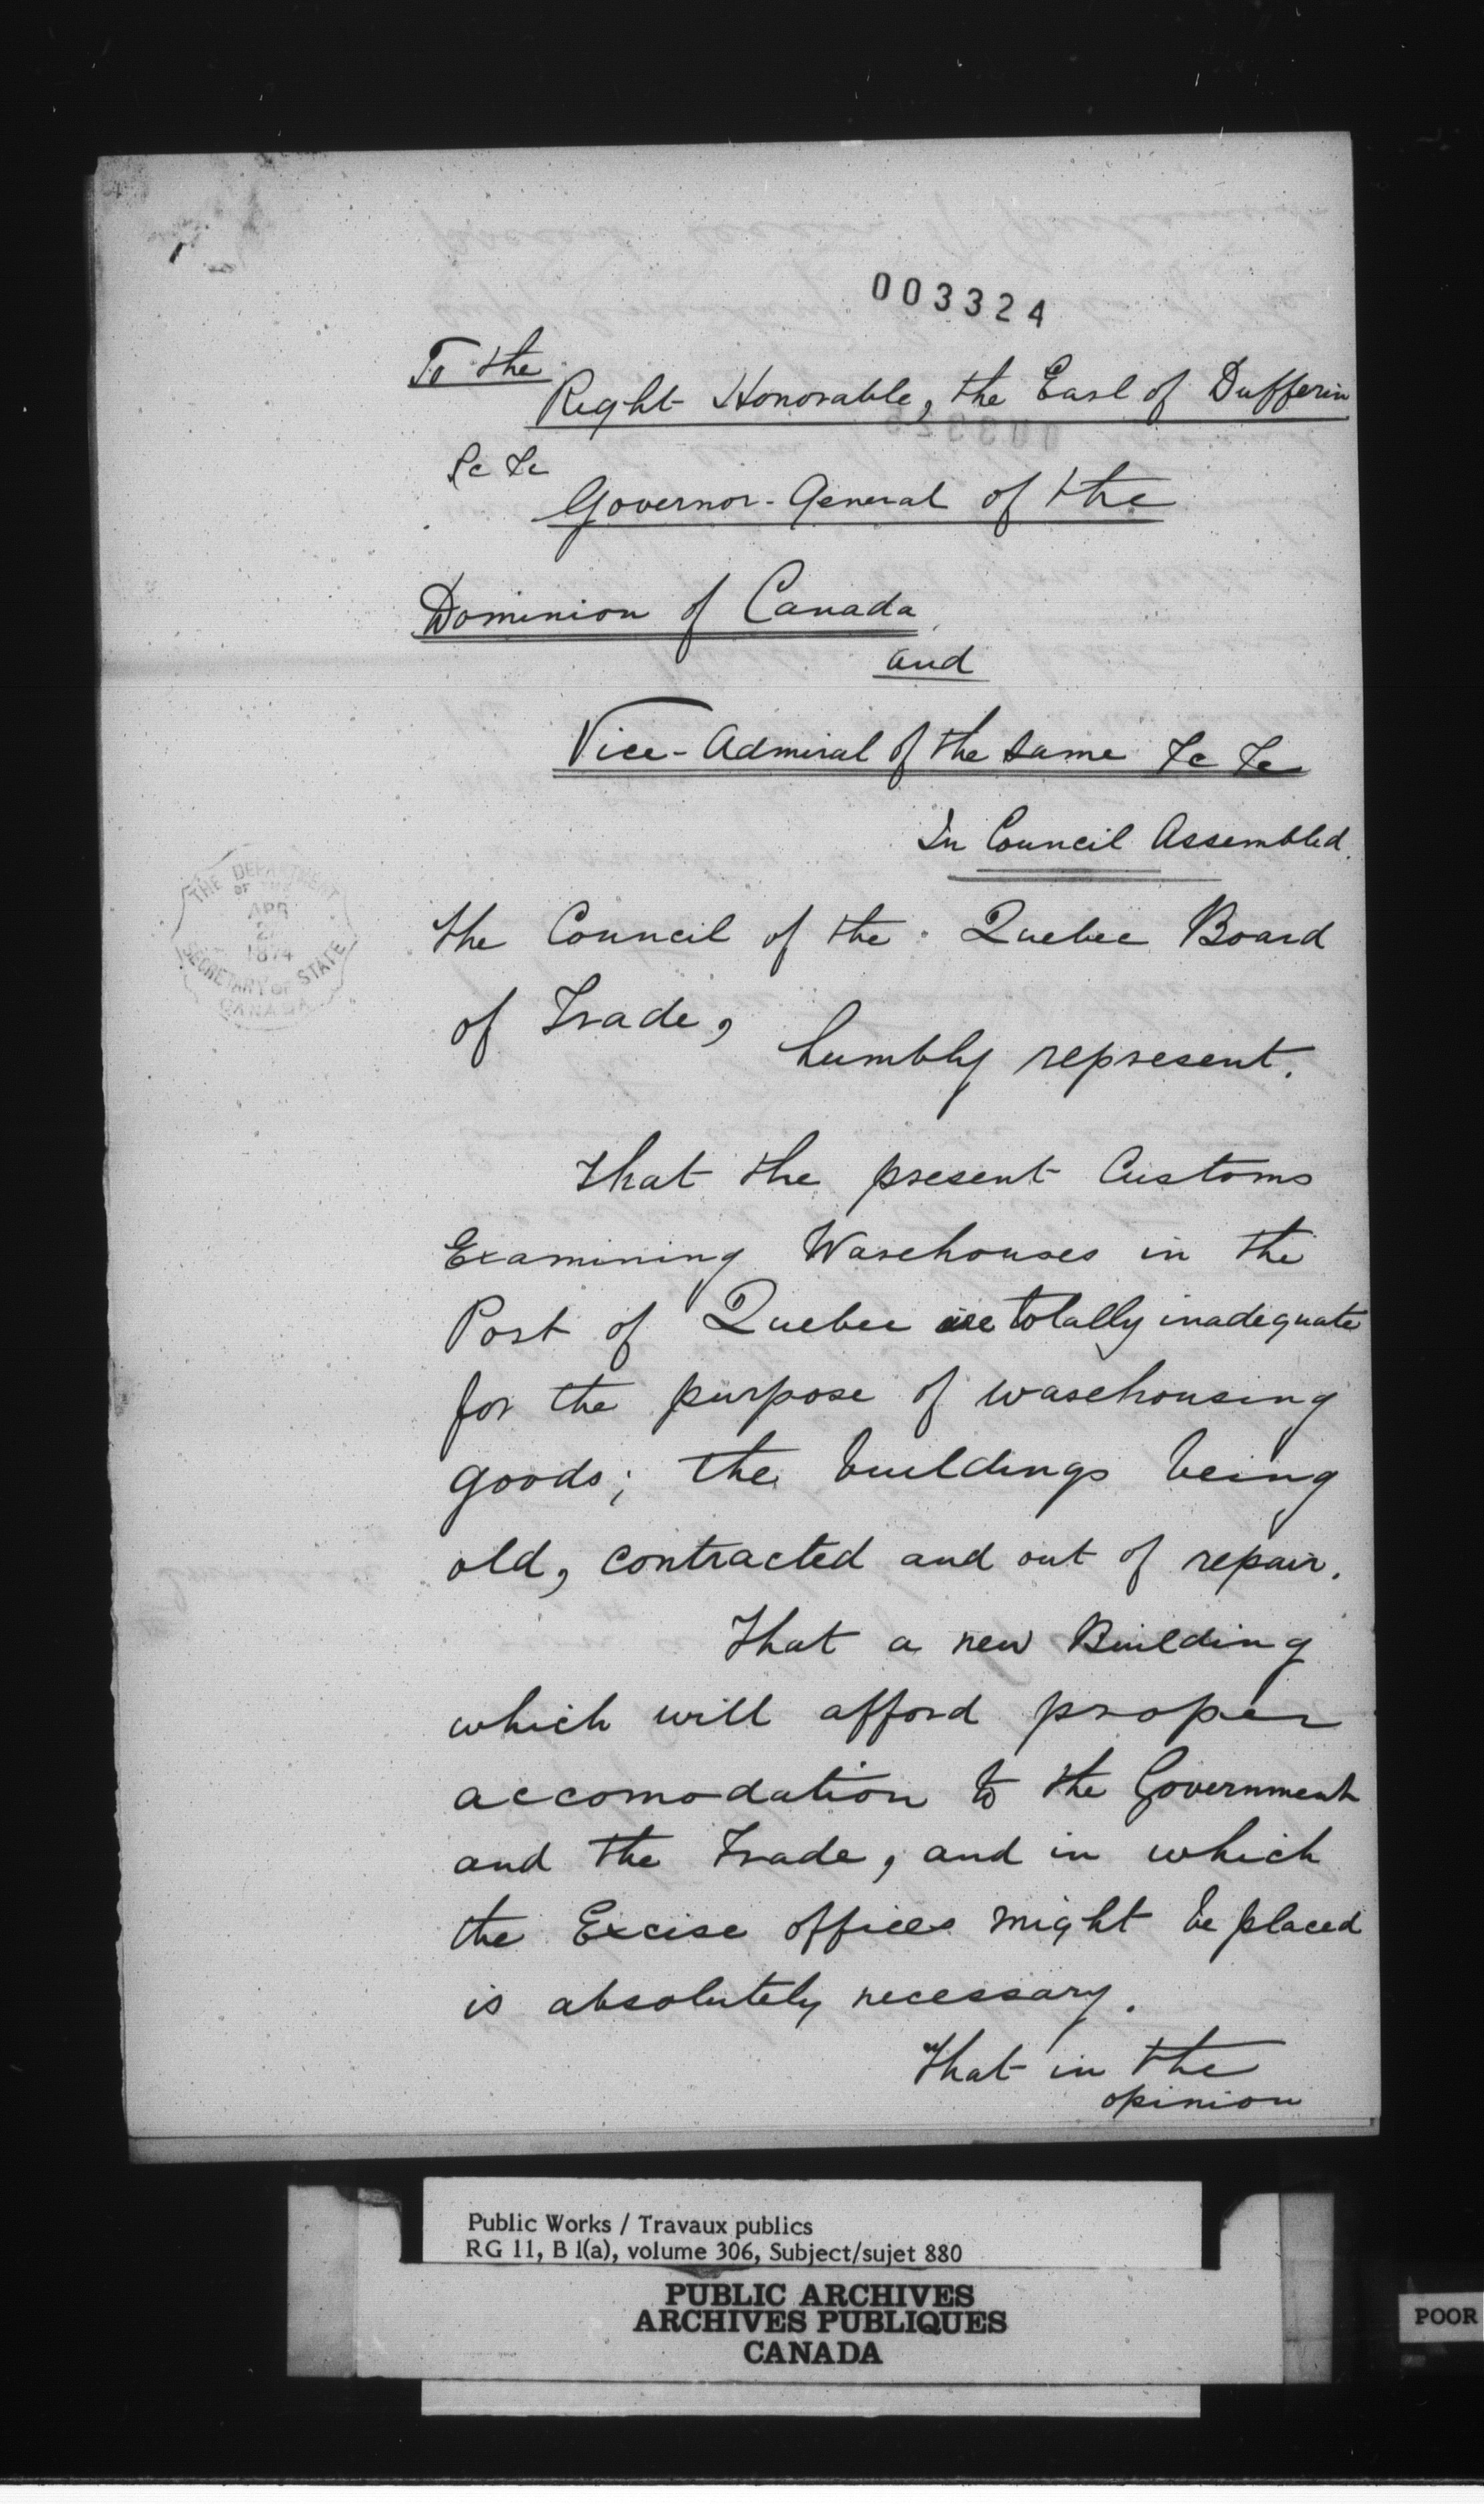 003324
To the
Right Honorable, the Earl of Dufferin
&c &c
Governor-General of the
Dominion of Canada
and
Vice-Admiral of the same &c &c
In Council Assembled.
The Council of the Quebec Board
of Trade,
humbly represent.
That the present Customs
Examining Warehouses in the
Port of Quebec are totally inadequate
for the purpose of warehousing
goods; the buildings being
old, contracted and out of repair.
That a new Building
which will afford proper
accomodation to the Government
and the Trade, and in which
the Excise offices might be placed
is absolutely necessary.
That in the
opinion
THE DEPARTMENT
OF THE
APR
1874
SECRETARY OF STATE
CANADA
Public Works / Travaux publics
RG 11, B 1(a), volume 306, Subject/sujet 880
PUBLIC ARCHIVES
ARCHIVES PUBLIQUES
CANADA
POOR